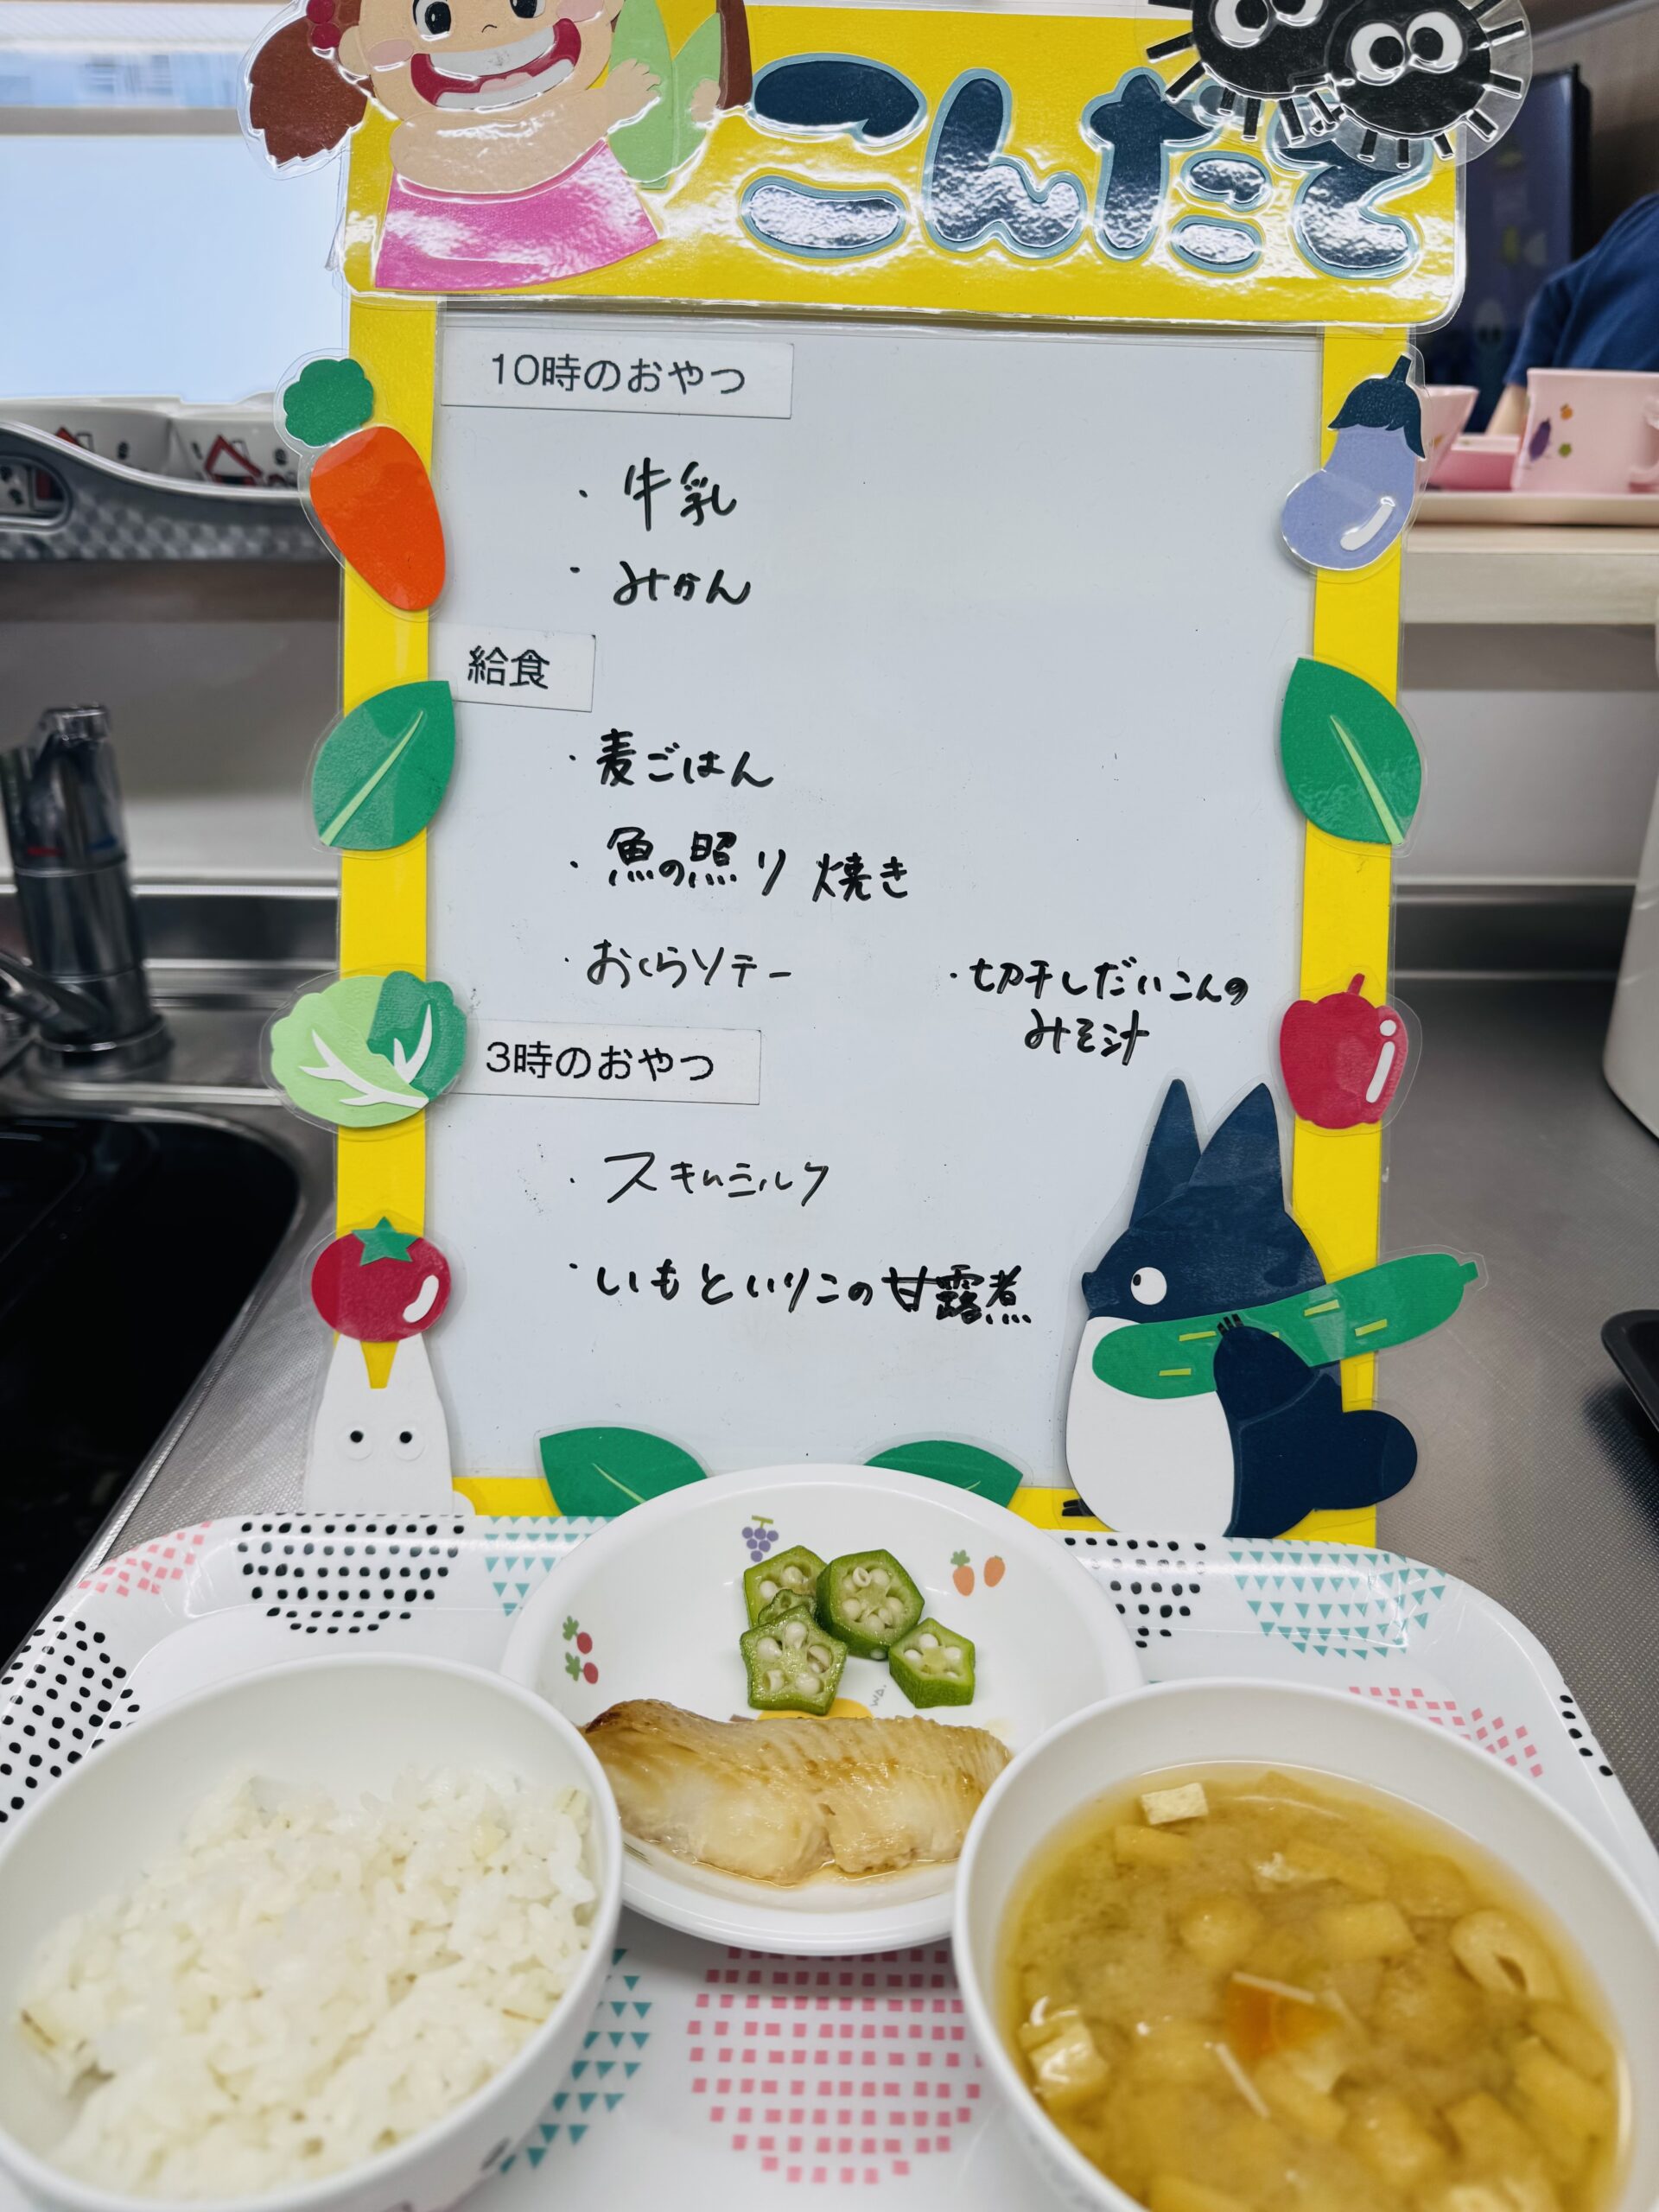 こんだて
10時のおやつ
・牛乳
・みかん
給食
・麦ごはん
・魚の照り焼き
・おくらソテー
・切干しだいこんの
みそ汁
3時のおやつ
・スキムミルク
・いもといりこの甘露煮